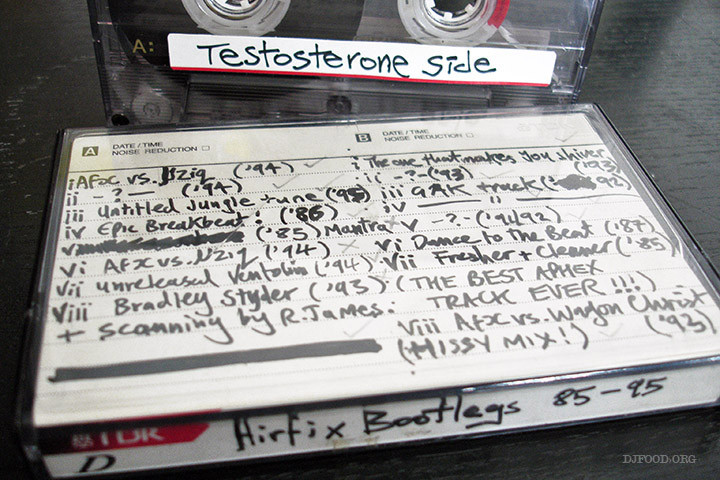 A:
Testosterone side
A DATE/TIME NOISE REDUCTION
B DATE/TIME NOISE REDUCTION
i AFXC vs. µziq ('94)
ii - ? - ('94)
iii Untitled Jungle tune ('95)
iv Epic Breakbeat: ('86)
v ('85) Mantra
vi AFXC vs. µziq ('94)
vii unreleased Ventolin ('94)
viii Bradley Styder ('93)
+ scanning by R.James:
i The one that makes you shiver ('93)
ii - ? - ('93)
iii GAK track (92)
iv —— " ——
v - ? - ('9492)
vi Dance to the Beat ('87)
vii Fresher + Cleaner ('85)
(THE BEST APHEX
TRACK EVER!!!)
viii AFX vs. Wagon Christ
('93)
(HISSY MIX!)
TDK
D
Airfix Bootlegs 85-95
DJFOOD.ORG